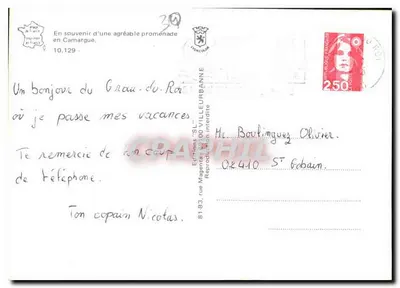 En souvenir d'une agréable promenade
en Camargue.
10.129 -
30
Un bonjour du Grau-du-Roi
où je passe mes vacances.
Te remercie de ton coup
de téléphone.
Ton copain Nicolas.
Editions "SL"
81-83, rue Magenta - 69100 VILLEURBANNE
Reproduction interdite
2,50
Mr. Boutinguez Olivier.
02410 St Gobain.